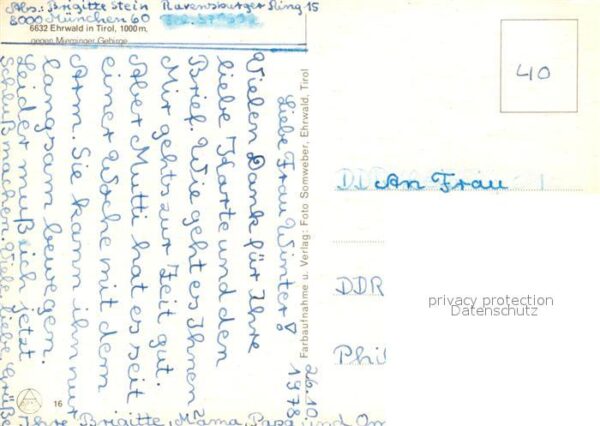 Abs.: Brigitte Stein Ravensburger Ring 15
8000 München 60
6632 Ehrwald in Tirol, 1000 m,
gegen Mieminger Gebirge
26.10.
1978
Liebe Frau Winter!
Vielen Dank für Ihre
liebe Karte und den
Brief. Wie geht es Ihnen
Mir geht's zur Zeit gut.
Aber Mutti hat es seit
einer Woche mit dem
Arm. Sie kann ihn nur
langsam bewegen.
Leider muß ich jetzt
Schluß machen. Viele liebe Grüße
Ihre Brigitte, Mama, Papa und Om
16
Farbaufnahme u. Verlag: Foto Somweber, Ehrwald, Tirol
40
An Frau
DDR
Phi
privacy protection
Datenschutz